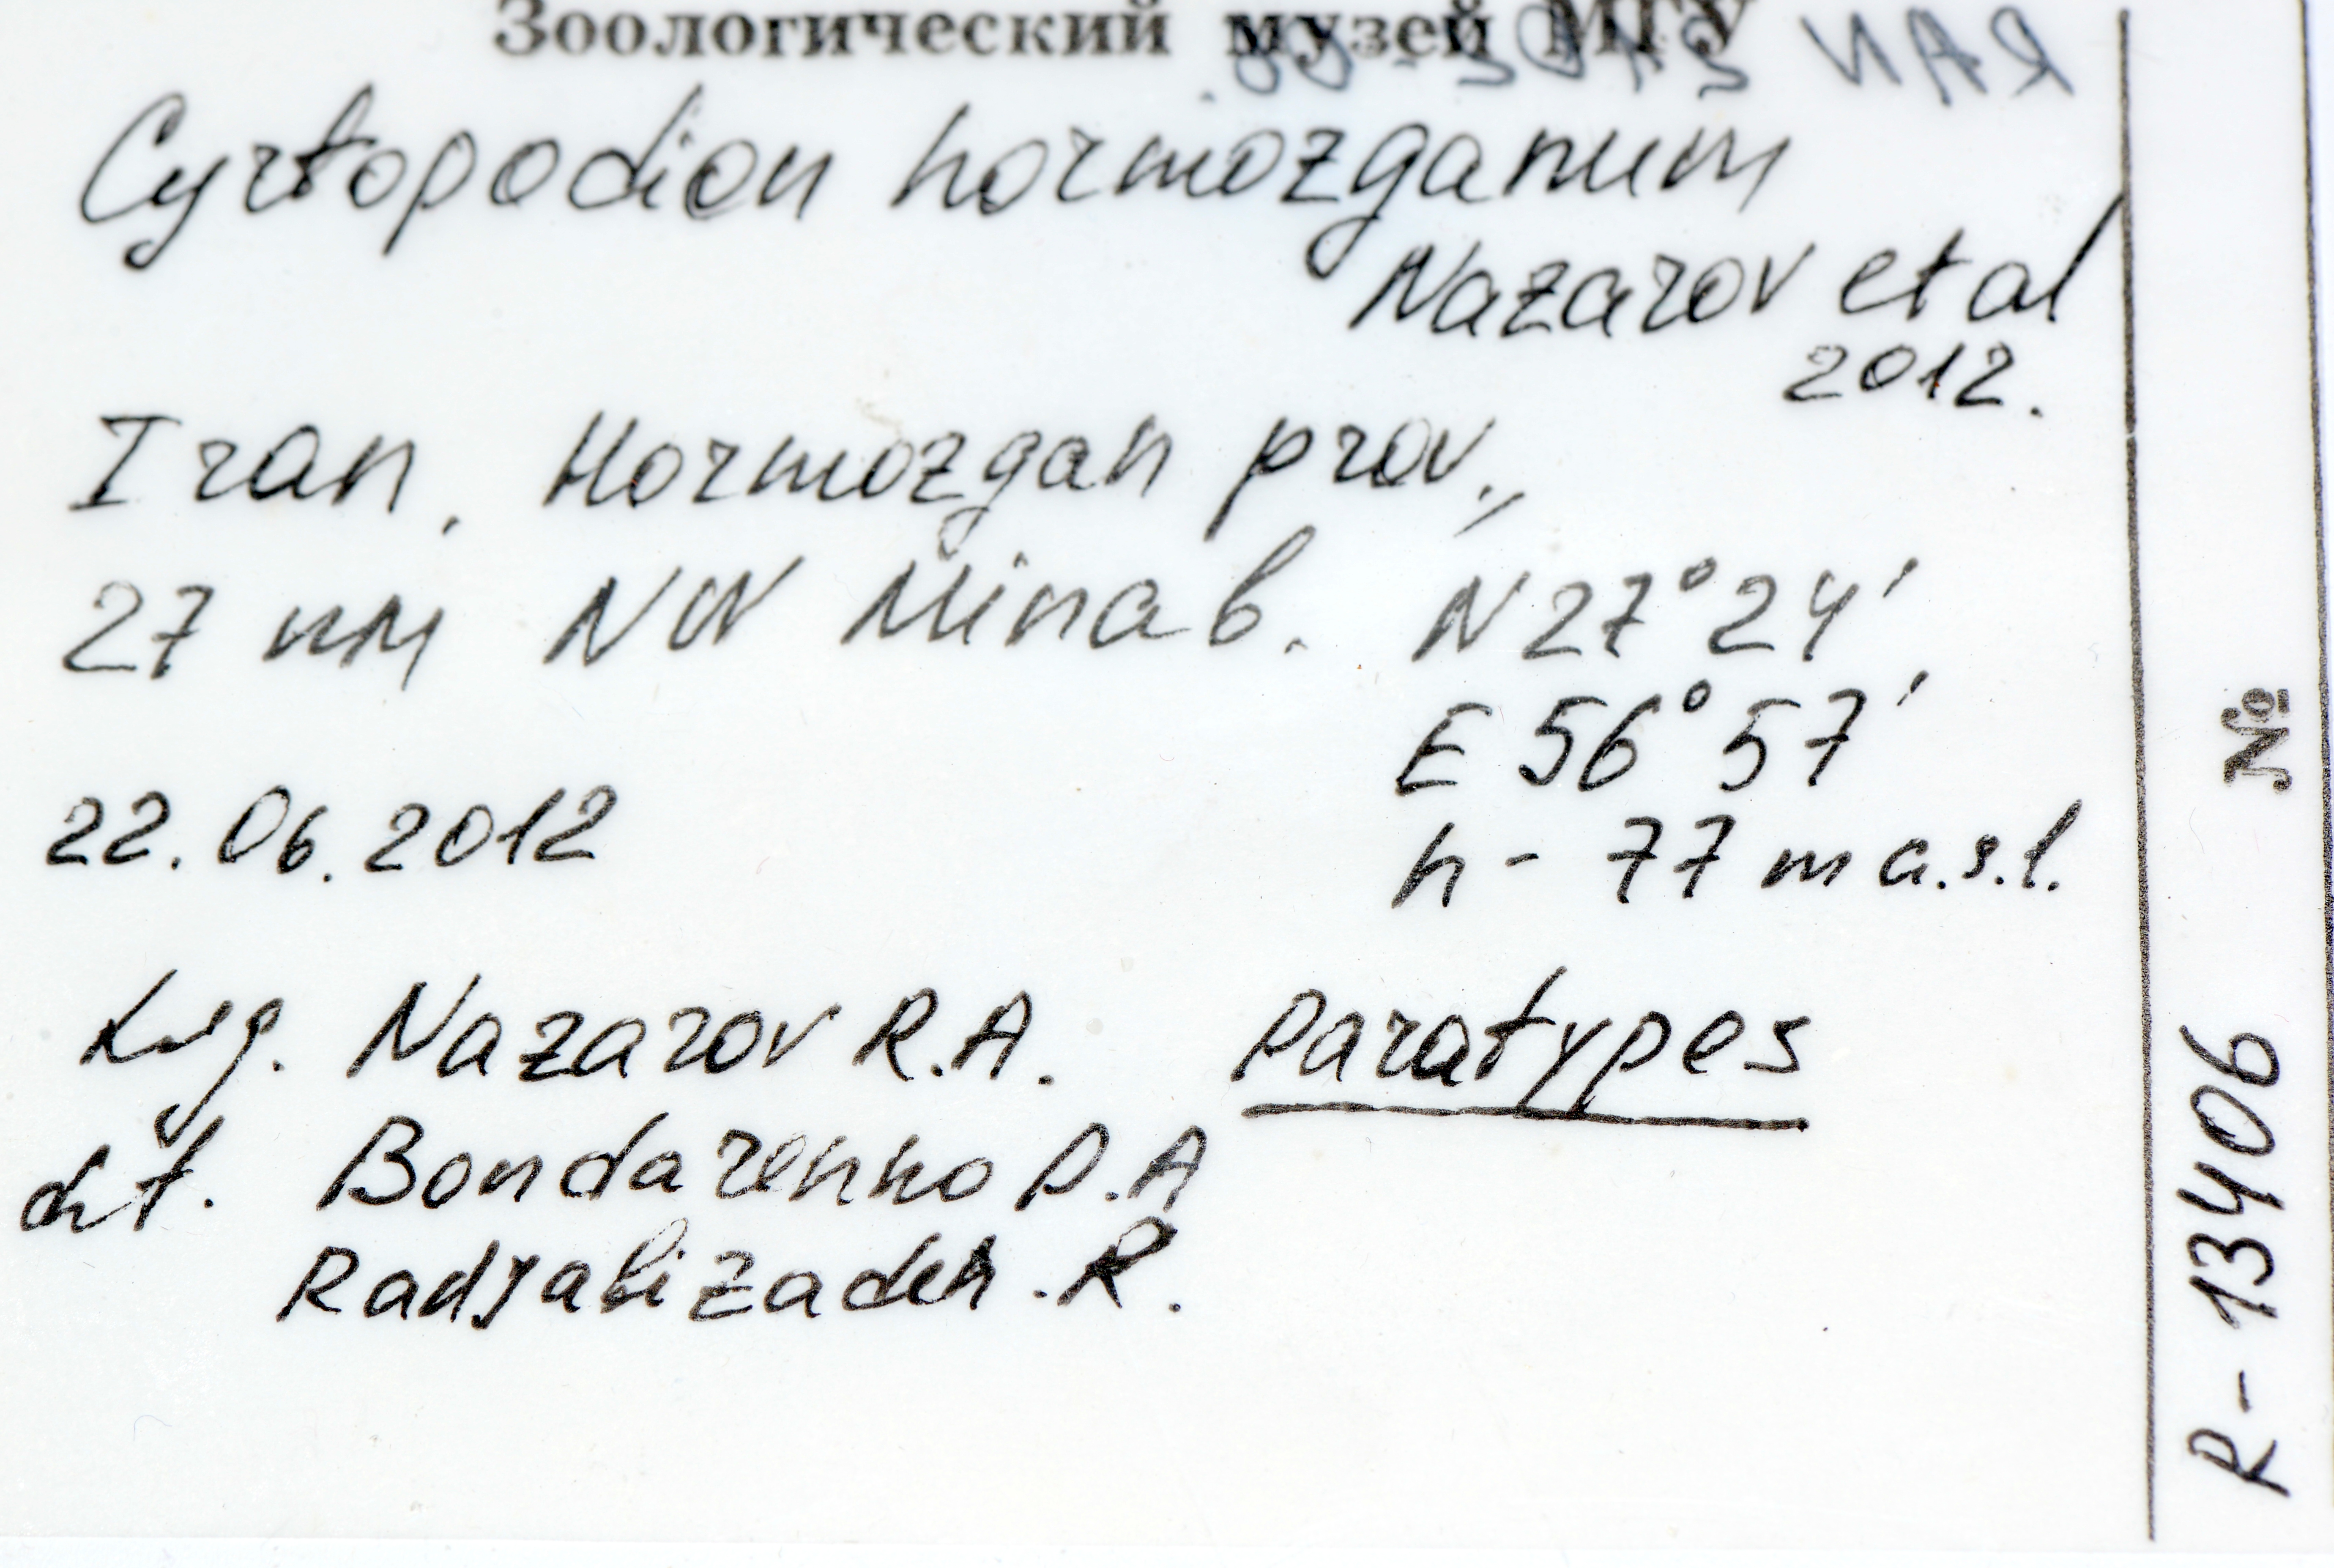 Зоологический музей МГУ
Cyrtopodion hormozganum
Nazarov et al
2012.
Iran, Hormozgan prov.,
27 км NW Minab. N 27° 24',
E 56° 57'
22.06.2012
h - 77 m a.s.l.
Leg. Nazarov R.A. Paratypes
det. Bondarenko D.A
Radjabizadeh .R.
№
R - 13406